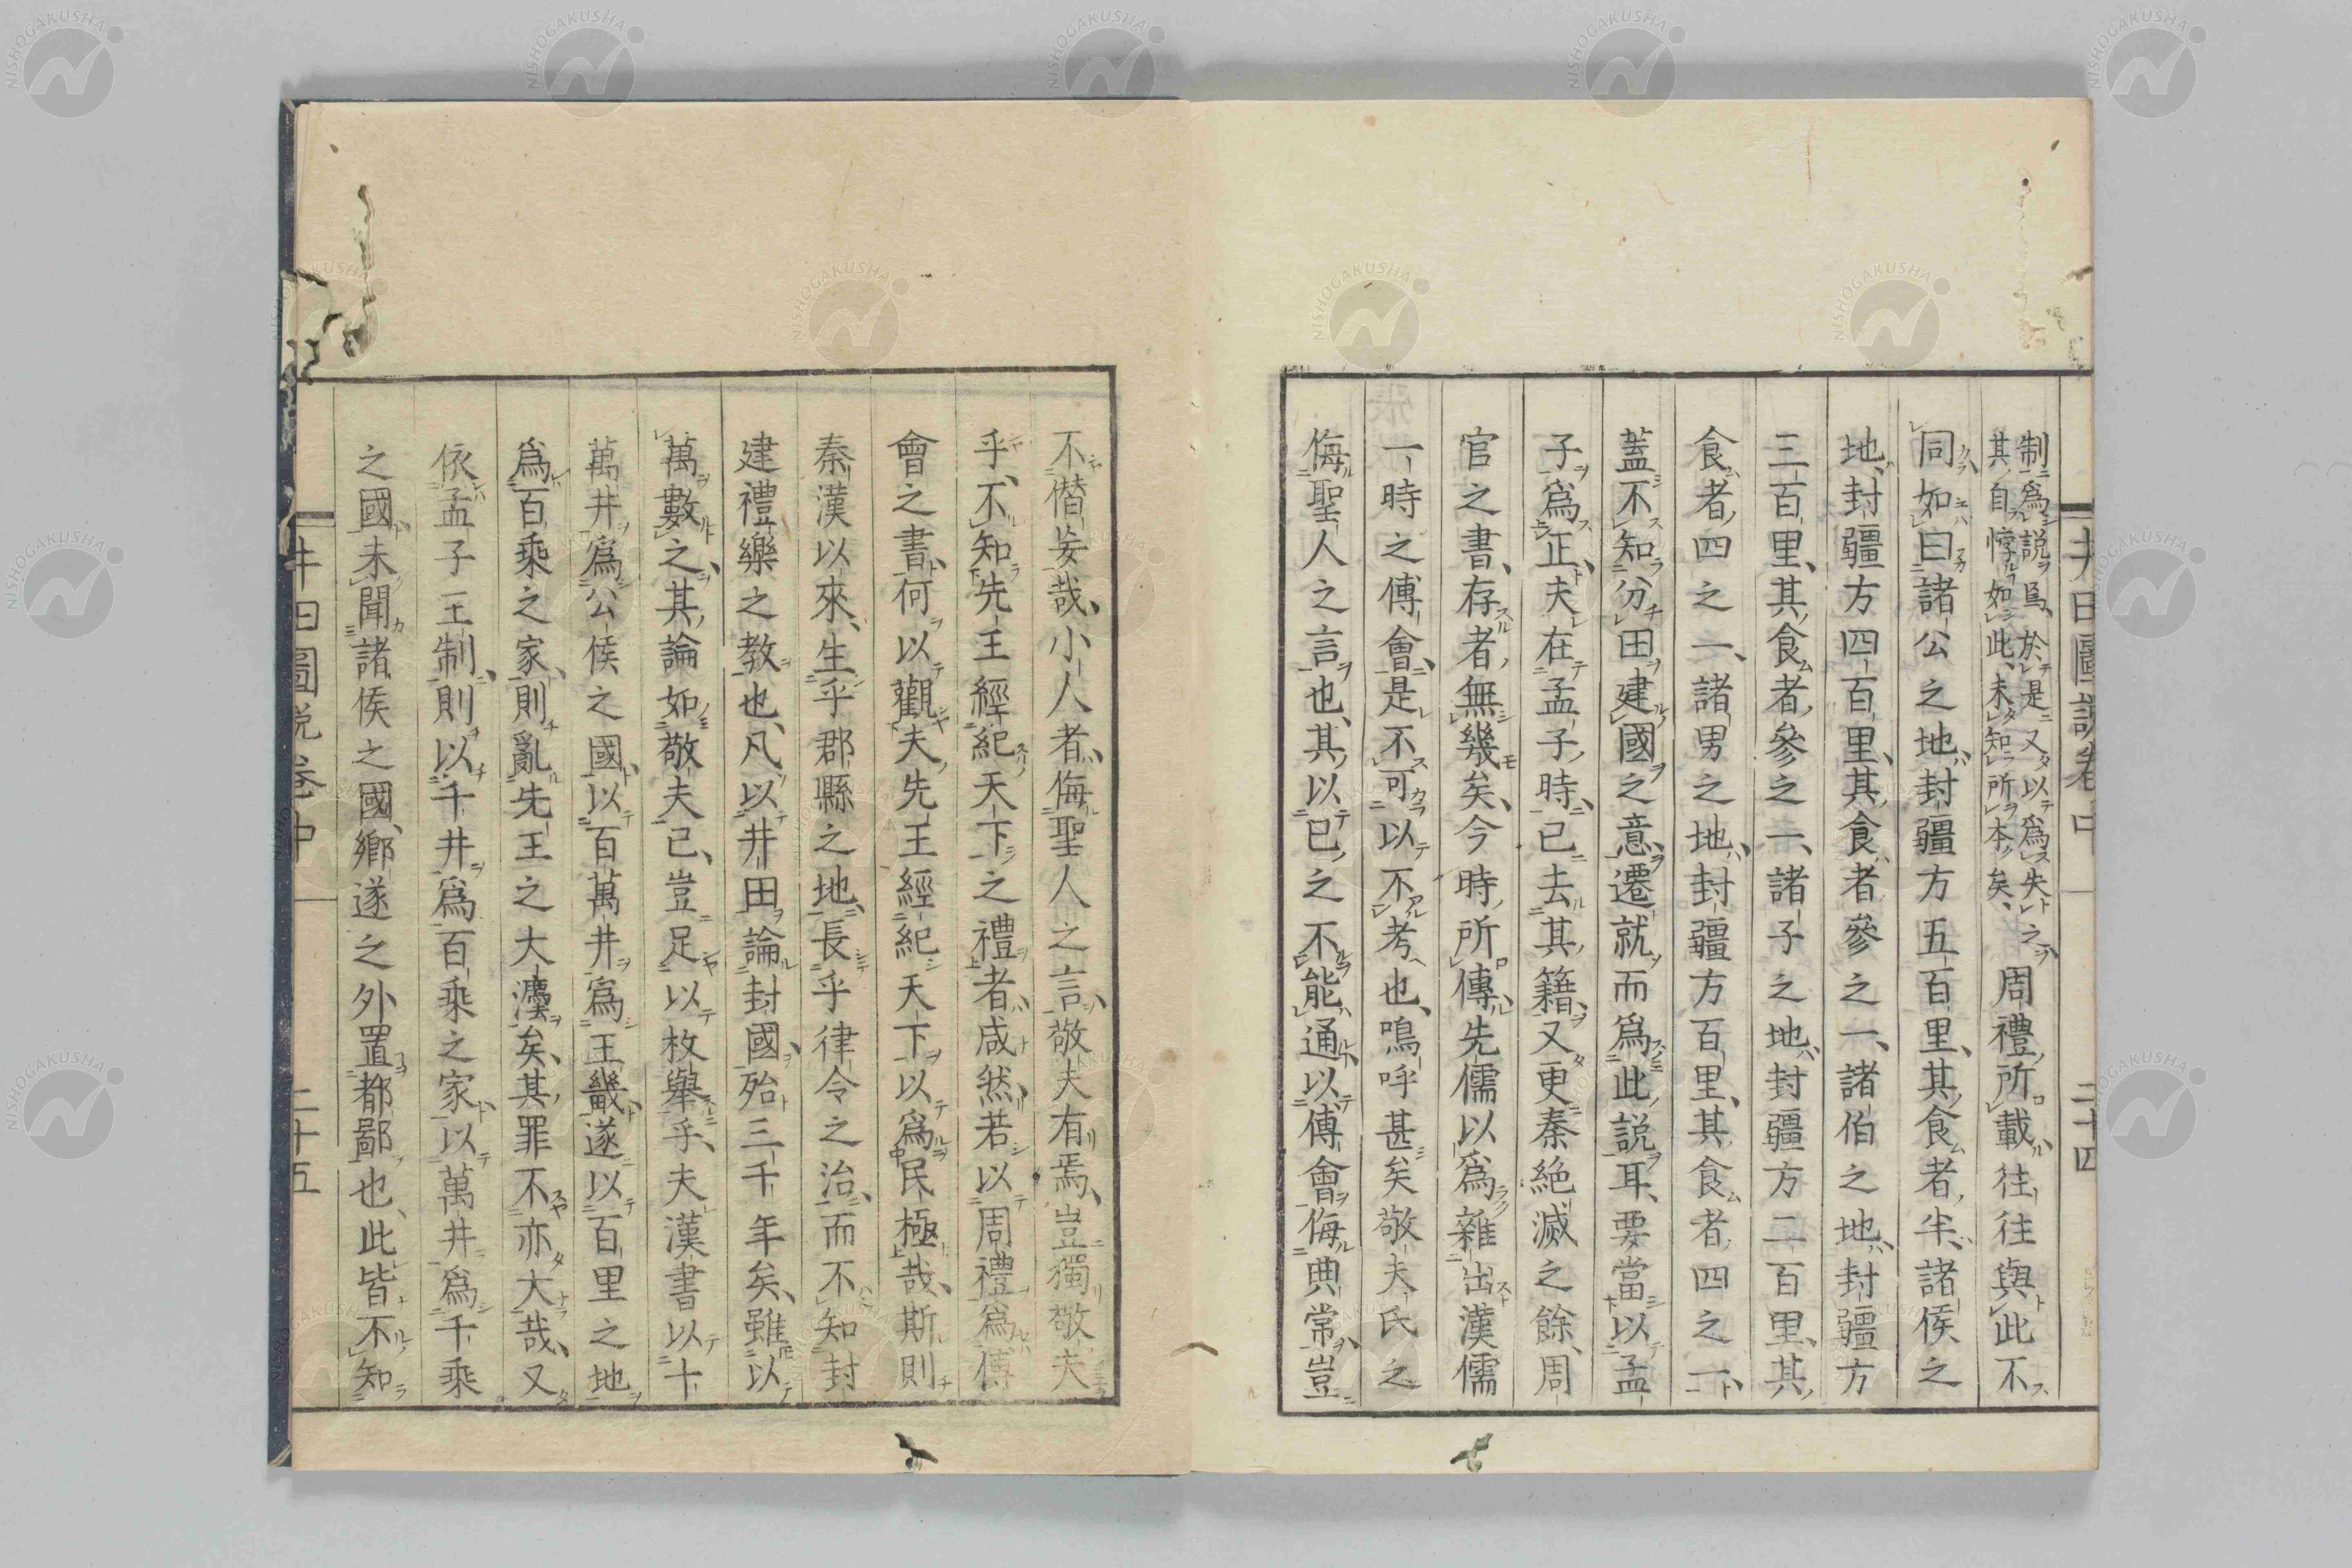 井田圖説卷中 二十四
制爲説焉、於是又以爲失之
其自悖如此、未知所本矣、
周禮所載往往與此不
同、如曰諸公之地、封疆方五百里、其食者半、諸侯之
地、封疆方四百里、其食者參之一、諸伯之地、封疆方
三百里、其食者參之一、諸子之地、封疆方二百里、其
食者四之一、諸男之地、封疆方百里、其食者四之一、
蓋不知分田建國之意、遷就而爲此説耳、要當以孟
子爲正、夫在孟子時、已去其籍、又更秦絶滅之餘、周
官之書、存者無幾矣、今時所傳、先儒以爲雜出漢儒
一時之傅會、是不可以不考也、嗚呼甚矣敬夫氏之
侮聖人之言也、其以已之不能通、以傅會侮典常、豈
不僭妄哉、小人者、侮聖人之言、敬夫有焉、豈獨敬夫
乎、不知先王經紀天下之禮者咸然、若以周禮爲傅
會之書、何以觀夫先王經紀天下、以爲民極哉、斯則
秦漢以來、生乎郡縣之地、長乎律令之治、而不知封
建禮樂之教也、凡以井田論封國、殆三千年矣、雖以
萬數之、其論如敬夫已、豈足以枚擧乎、夫漢書以十
萬井爲公侯之國、以百萬井爲王畿、遂以百里之地
爲百乘之家、則亂先王之大瀆矣、其罪不亦大哉、又
依孟子王制、則以千井爲百乘之家、以萬井爲千乘
之國、未聞諸侯之國、鄉遂之外置都鄙也、此皆不知
井田圖説卷中 二十五
NISHOGAKUSHA